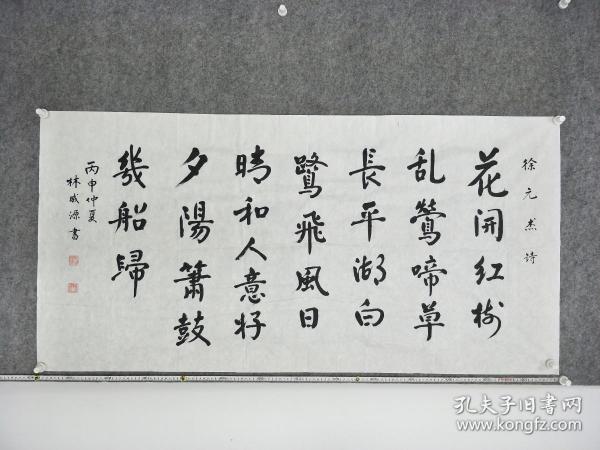 徐元杰诗
花開红树
乱鶯啼草
長平湖白
鷺飛風日
晴和人意好
夕陽簫鼓
幾船歸
丙申仲夏
林成源書
孔夫子旧书网
www.kongfz.com